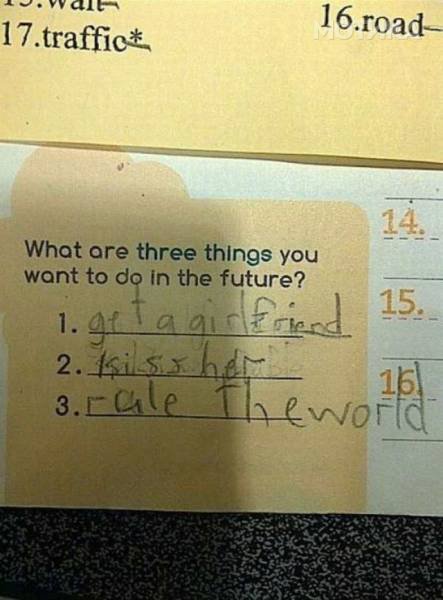 16.road
17.traffic*
What are three things you
want to do in the future?
1. get a girlfriend
2. kiss her
3. rule the world
14.
15.
16.